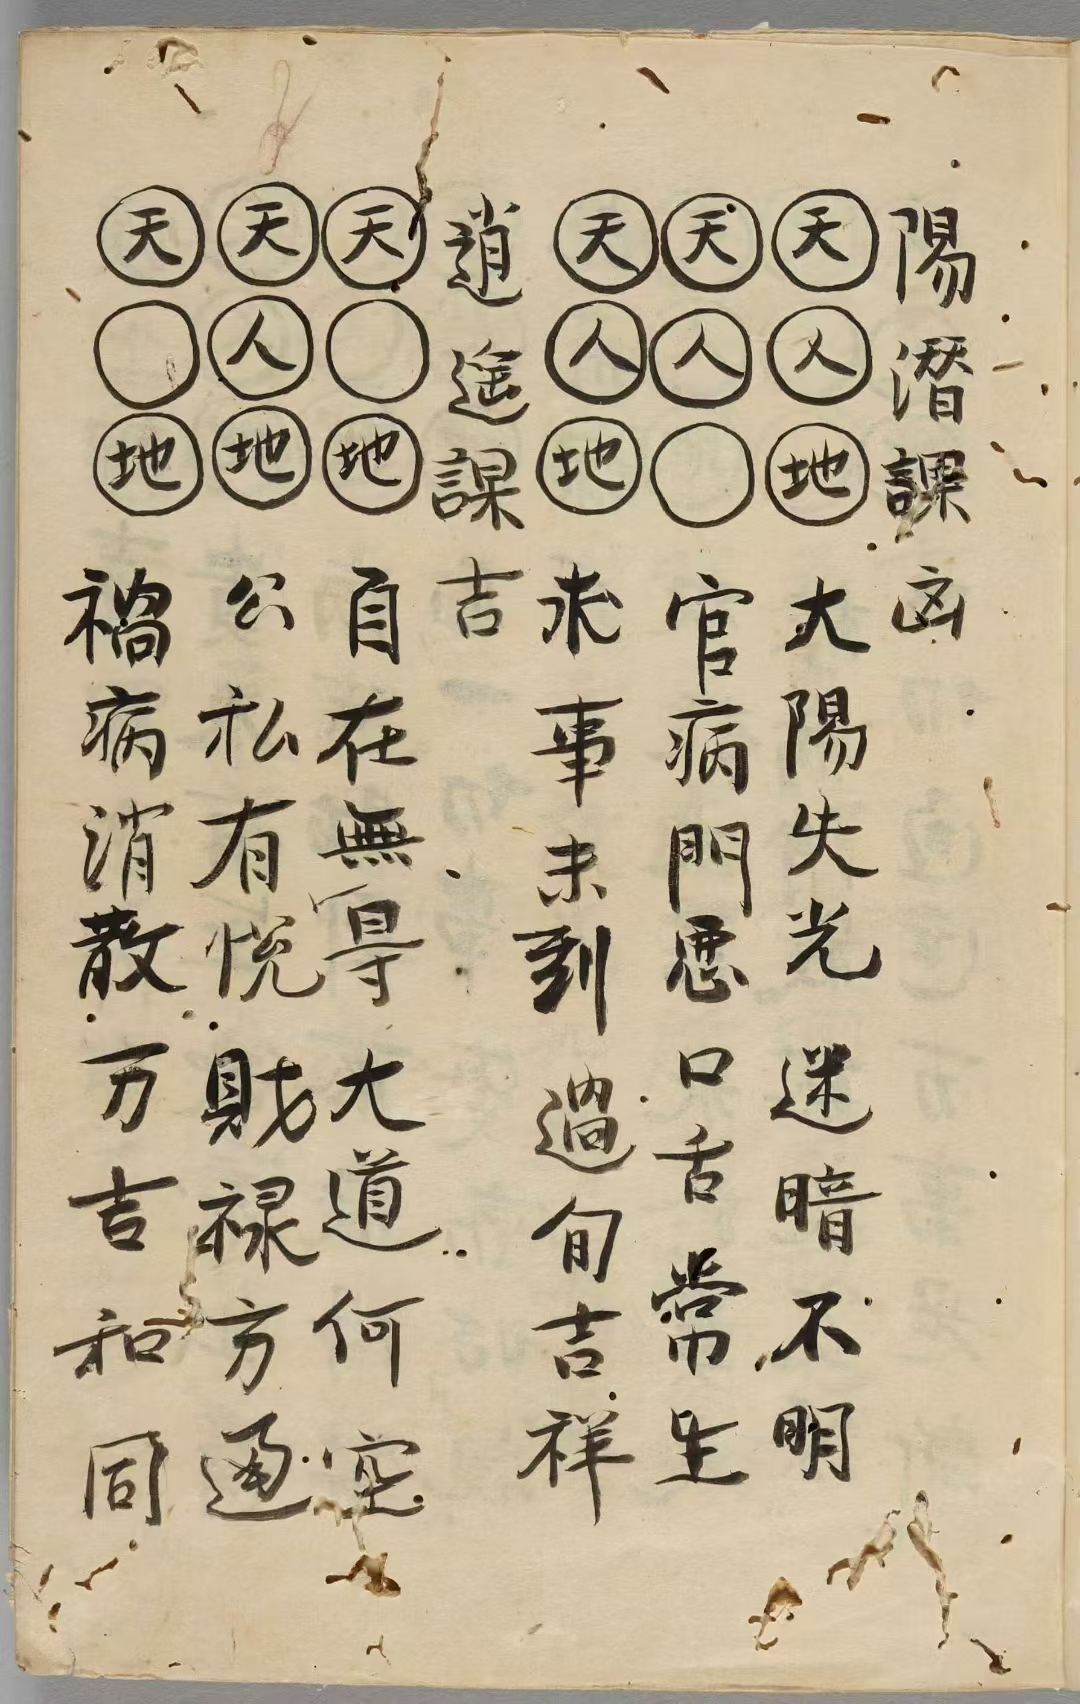 陽潛課 凶
天人地 大陽失光 迷暗不明
天人○ 官病門悪 口舌常生
天人地 未事未到 過旬吉祥
逍遙課 吉
天○地 自在無㝵 大道何空
天人地 公私有悅 財禄方通
天○地 禍病消散 万吉和同